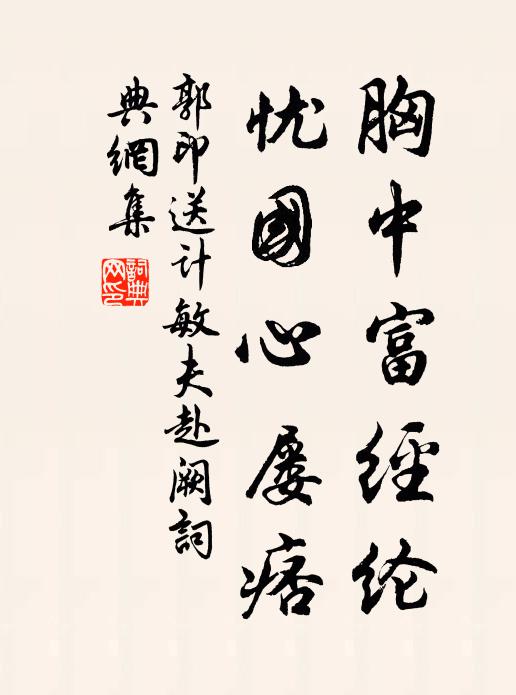 胸中富經纶
忧國心屡痞
郭印送计敏夫赴阙詞
典網集
詞典网印